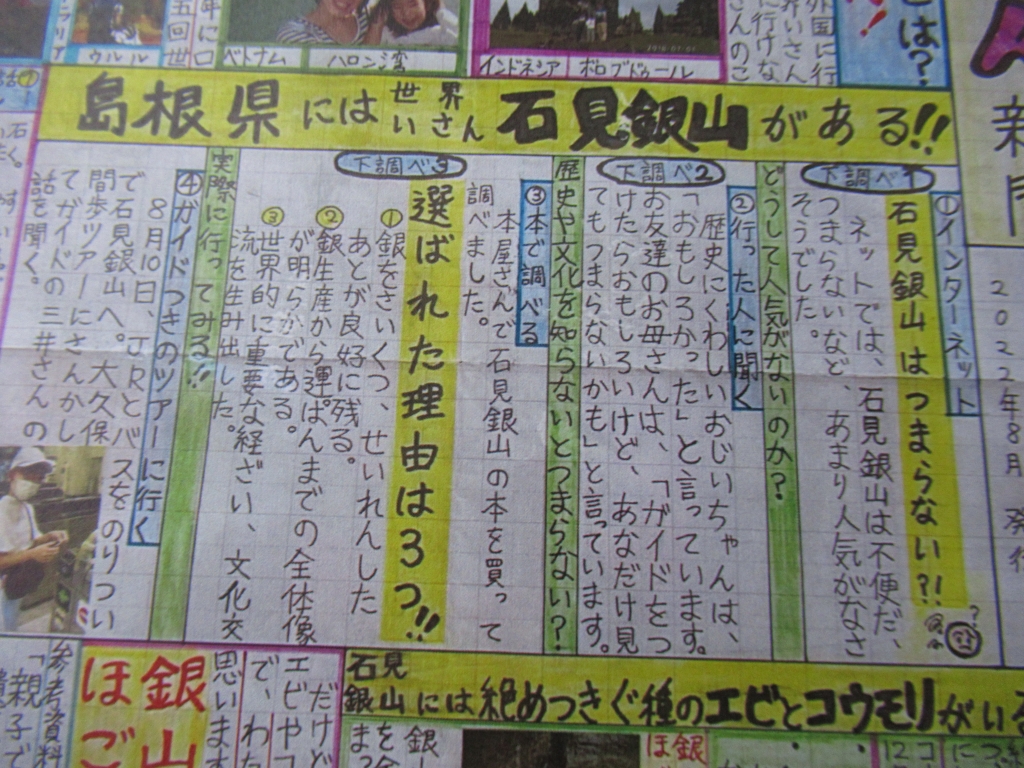 外国に行
に行けな
は？
新
2022年8月 発行
五回世
ウルル
ベトナム
ハロン湾
インドネシア
ボロブドゥール
島根県には世界いさん石見銀山がある!!
下調べ1
①インターネット
石見銀山はつまらない?!
ネットでは、石見銀山は不便だ、
つまらないなど、あまり人気がなさ
そうでした。
どうして人気がないのか？
下調べ2
②行った人に聞く
歴史にくわしいおじいちゃんは、
「おもしろかった」と言っています。
お友達のお母さんは、「ガイドをつ
けたらおもしろいけど、あなだけ見
てもつまらないかも」と言っています。
歴史や文化を知らないとつまらない？
③本で調べる
本屋さんで石見銀山の本を買って
調べました。
下調べ3
選ばれた理由は3つ!!
①銀をさいくつ、せいれんした
あとが良好に残る。
②銀生産から運ぱんまでの全体像
が明らかである。
③世界的に重要な経ざい、文化交
流を生み出した。
実際に行ってみる!!
④ガイドつきのツアーに行く
8月10日、JRとバスをのりつい
で石見銀山へ。大久保
間歩ツアーにさんかし
てガイドの三井さんの
話を聞く。
石見銀山には絶めつきぐ種のエビとコウモリがいる
だけど
エビやコ
で、わた
思います
銀山
ほご
参考資料
「親子で